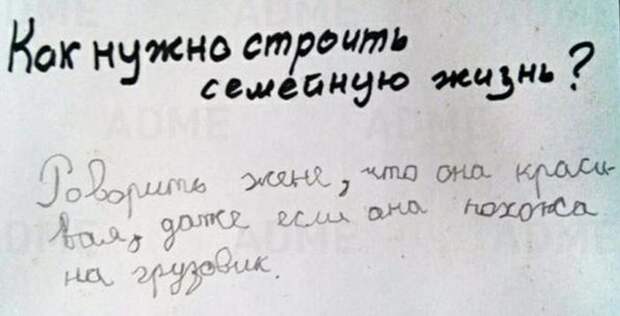 Как нужно строить
семейную жизнь?
Говорить жене, что она краси-
вая, даже если она похожа
на грузовик.
ADME
ADME
ADME
ADME
ADME